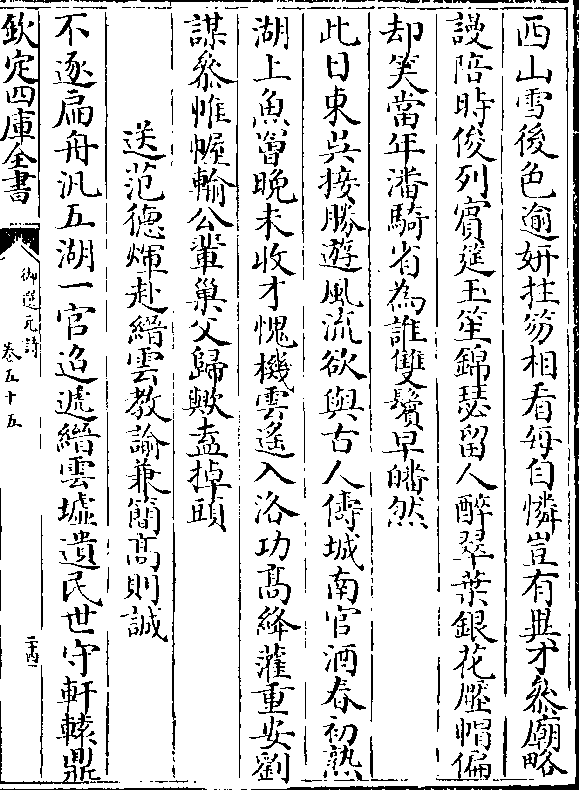 西山雪後色逾妍拄笏相看每自憐豈有異才叅廟略
謾陪時俊列賓筵玉笙錦瑟留人醉翠葉銀花壓帽偏
却笑當年潘騎省為誰雙鬢早皤然
此日東吳接勝遊風流欲與古人儔城南官酒春初熟
湖上魚罾晚未收才愧機雲遙入洛功髙絳灌重安劉
謀叅帷幄輸公輩巢父歸歟盍掉頭
送范德煇赴縉雲教諭兼簡髙則誠
不逐扁舟汎五湖一官迢遞縉雲墟遺民世守軒轅鼎
欽定四庫全書
御選元詩
卷五十五
二十四